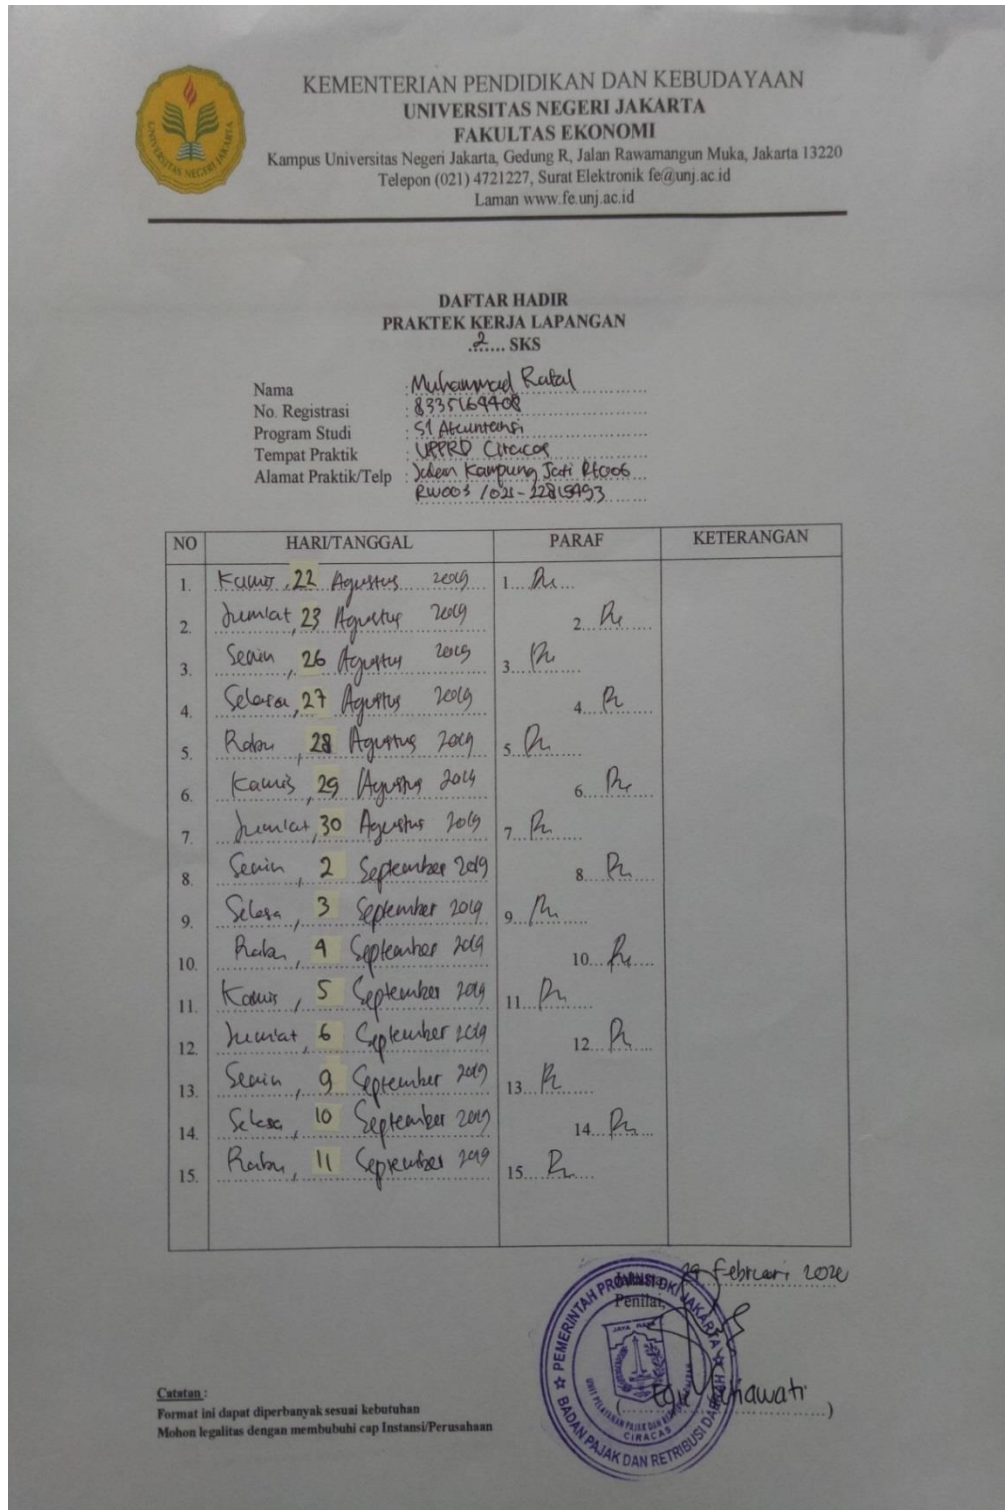 KEMENTERIAN PENDIDIKAN DAN KEBUDAYAAN
UNIVERSITAS NEGERI JAKARTA
FAKULTAS EKONOMI
Kampus Universitas Negeri Jakarta, Gedung R, Jalan Rawamangun Muka, Jakarta 13220
Telepon (021) 4721227, Surat Elektronik fe@unj.ac.id
Laman www.fe.unj.ac.id
UNIVERSITAS NEGERI JAKARTA
DAFTAR HADIR
PRAKTEK KERJA LAPANGAN
2 SKS
Nama : Muhammad
No. Registrasi : 8335164408
Program Studi : S1 Akuntansi
Tempat Praktik : UPPRD Ciracas
Alamat Praktik/Telp : Jalan Kampung Jati Rt006
RW003 / 021-22819493
NO HARI/TANGGAL PARAF KETERANGAN
1. Kamis, 22 Agustus 2019 1.
2. Jumlat, 23 Agustus 2019 2.
3. Senin, 26 Agustus 2019 3.
4. Selasa, 27 Agustus 2019 4.
5. Rabu, 28 Agustus 2019 5.
6. Kamis, 29 Agustus 2019 6.
7. Jumlat, 30 Agustus 2019 7.
8. Senin, 2 September 2019 8.
9. Selasa, 3 September 2019 9.
10. Rabu, 4 September 2019 10.
11. Kamis, 5 September 2019 11.
12. Jumlat, 6 September 2019 12.
13. Senin, 9 September 2019 13.
14. Selasa, 10 September 2019 14.
15. Rabu, 11 September 2019 15.
29 Februari 2020
Penilai,
PEMERINTAH PROVINSI DKI JAKARTA
JAYA RAYA
UNIT PELAYANAN PAJAK DAN RETRIBUSI DAERAH
CIRACAS
BADAN PAJAK DAN RETRIBUSI DAERAH
Catatan :
Format ini dapat diperbanyak sesuai kebutuhan
Mohon legalitas dengan membubuhi cap Instansi/Perusahaan